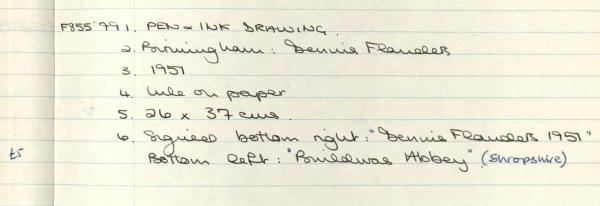 F855'79 1. PEN & INK DRAWING.
2. Birmingham: Dennis Flanders
3. 1951
4. Ink on paper
5. 26 x 37 cms.
6. Signed bottom right: "Dennis Flanders 1951"
£5 Bottom left: "Buildwas Abbey" (Shropshire)